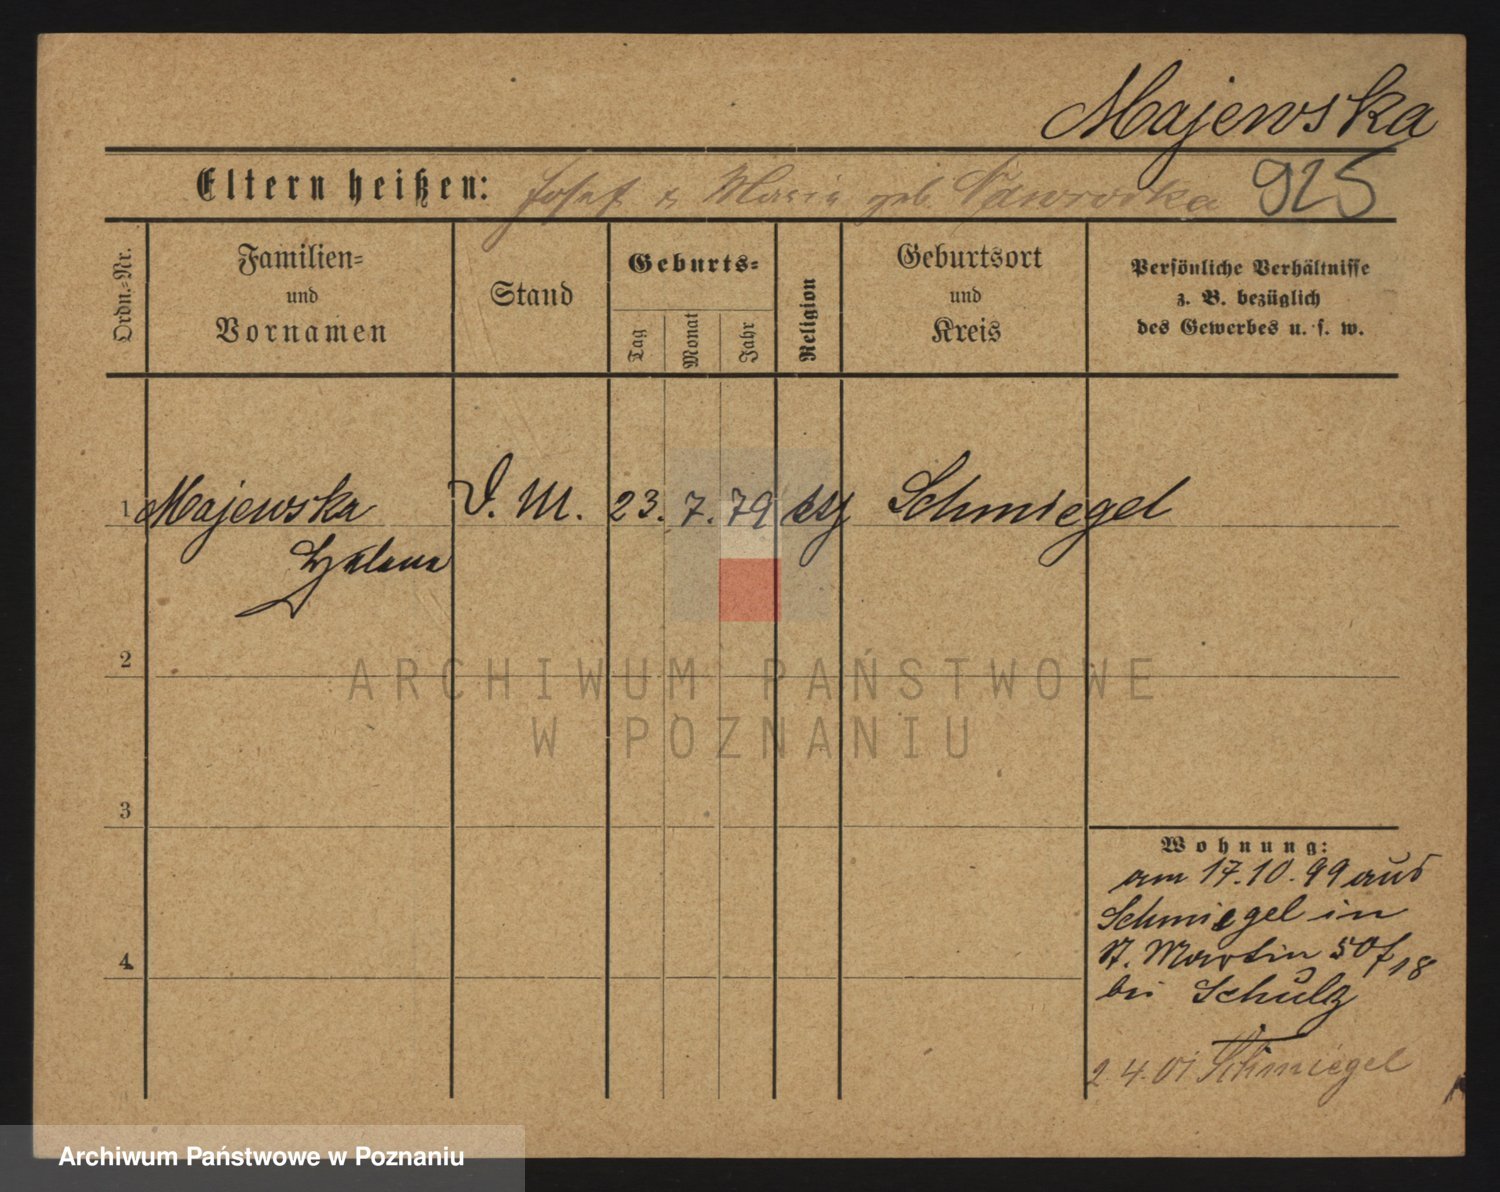 Majewska
Eltern heißen: Josef & Maria geb. Nawrocka 925
Ordn.-Nr.
Familien-
und
Vornamen
Stand
Geburts-
Tag
Monat
Jahr
Religion
Geburtsort
und
Kreis
Persönliche Verhältnisse
z. B. bezüglich
des Gewerbes u. s. w.
1 Majewska D. M. 23. 7. 79 Schmiegel
Helene
2
3
4
Wohnung:
am 17.10.99 aus
Schmiegel in
St. Martin 50/18
bei Schulz
2.4.01 Schmiegel
ARCHIWUM PAŃSTWOWE
W POZNANIU
Archiwum Państwowe w Poznaniu